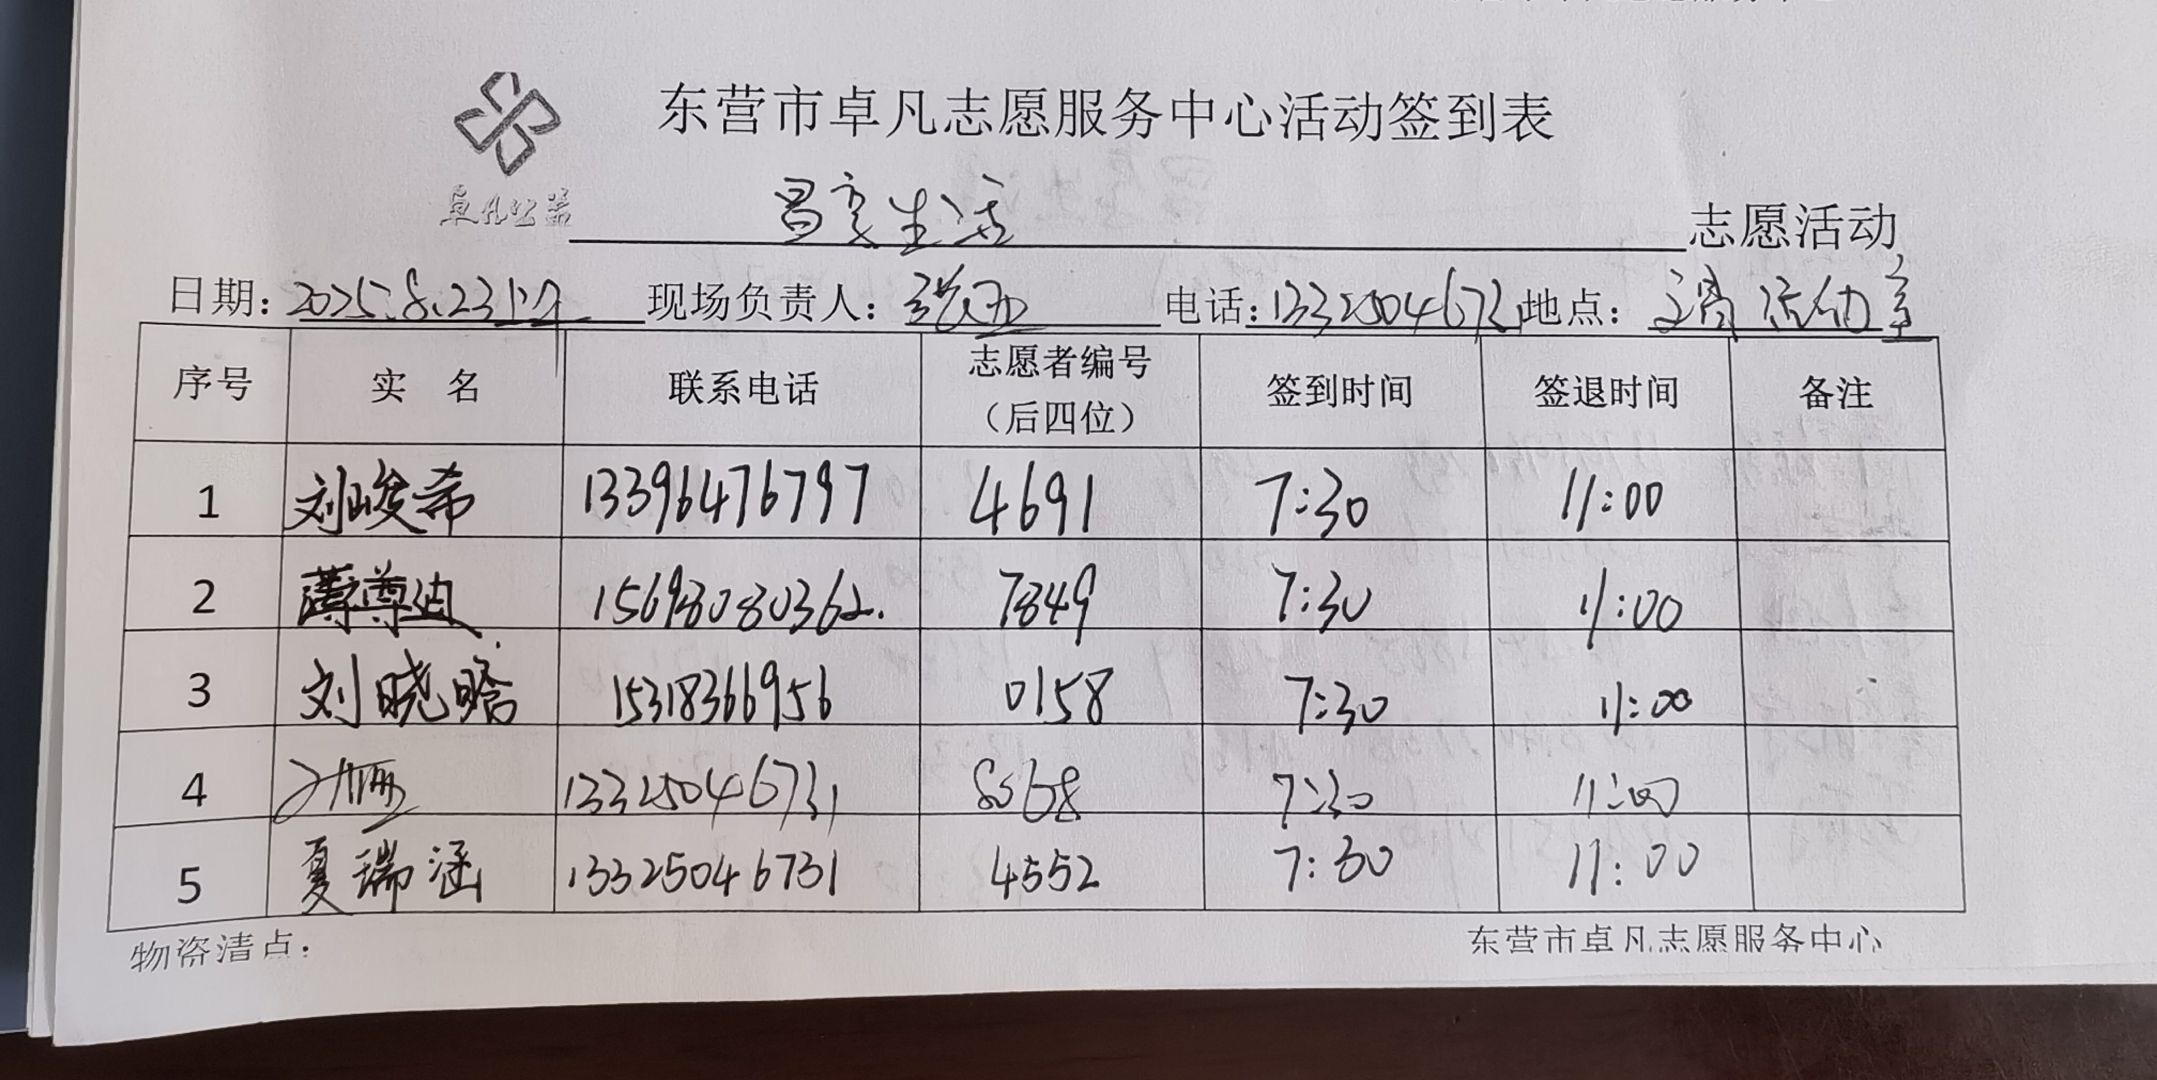 东营市卓凡志愿服务中心活动签到表
卓凡公益
昌享生活 志愿活动
日期：2025.8.23上午 现场负责人： 电话：13325046731 地点：活动室
序号 实 名 联系电话 志愿者编号（后四位） 签到时间 签退时间 备注
1 刘峻希 13396476797 4691 7:30 11:00
2 薄尊迪 15698080362. 7849 7:30 11:00
3 刘晓晗 15318366956 0158 7:30 11:00
4 13325046731 8568 7:30 11:00
5 夏瑞涵 13325046731 4552 7:30 11:00
物资清点： 东营市卓凡志愿服务中心